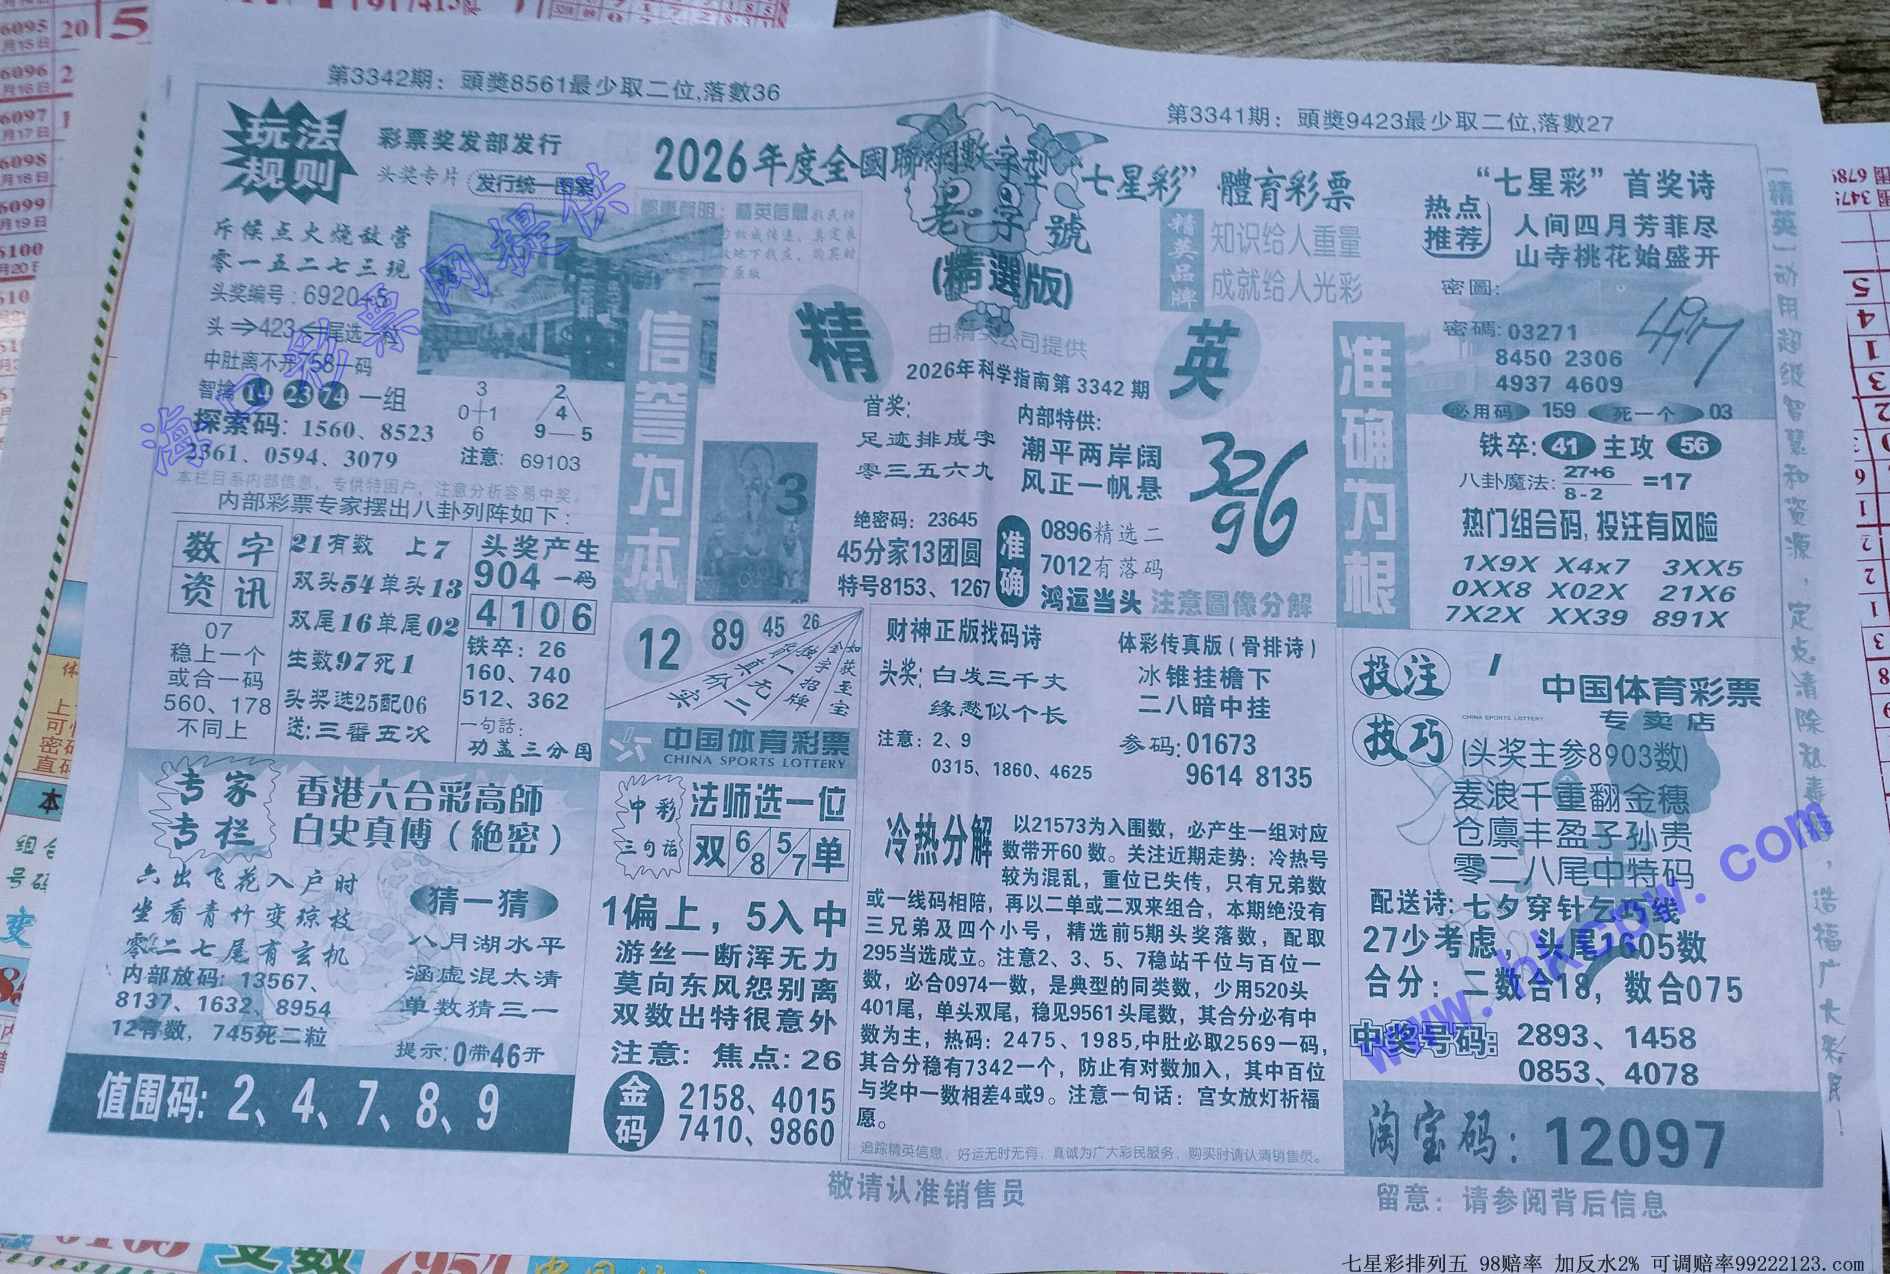 第3342期：頭獎8561最少取二位,落數36
第3341期：頭獎9423最少取二位,落數27
玩法
规则
彩票奖发部发行
头奖专片
发行统一图案
2026年度全國聯網數字利
"七星彩"體育彩票
老字號
(精選版)
斥候点火烧敌营
零一五二七三现
头奖编号：6920
头⇒423⇐尾选一粒
中肚离不开758一码
智擒 14 23 74 一组
探索码：1560、8523
2361、0594、3079
3
0 1
6
2
4
9 5
注意：69103
本栏目系内部信息，专供特困户，注意分析容易中奖。
内部彩票专家摆出八卦列阵如下：
信誉为本
3
精 英
由精英公司提供
2026年科学指南第3342期
精英品牌
知识给人重量
成就给人光彩
首奖：
足迹排成字
零三五六九
内部特供：
潮平两岸阔
风正一帆悬
326
9
绝密码：23645
45分家13团圆
特号8153、1267
准确
0896精选二
7012有落码
鸿运当头 注意圖像分解
准确为根
"七星彩"首奖诗
热点
推荐
人间四月芳菲尽
山寺桃花始盛开
密圖：
497
密碼：03271
8450 2306
4937 4609
必用码 159 死一个 03
铁卒：41 主攻 56
八卦魔法：27+6
8-2
=17
热门组合码,投注有风险
1X9X X4x7 3XX5
0XX8 X02X 21X6
7X2X XX39 891X
数字
资讯
07
稳上一个
或合一码
560、178
不同上
21有数 上7
双头54单头13
双尾16单尾02
生数97死1
头奖选25配06
送：三番五次
头奖产生
904一码
4106
铁卒：26
160、740
512、362
一句話：
功盖三分国
12 89 45 26
如获至宝
金字招牌
独一无二
真价实
中国体育彩票
CHINA SPORTS LOTTERY
财神正版找码诗
头奖：白发三千丈
缘愁似个长
注意：2、9
0315、1860、4625
体彩传真版(骨排诗)
冰锥挂檐下
二八暗中挂
参码：01673
9614 8135
投注
技巧
中国体育彩票
CHINA SPORTS LOTTERY
专卖店
(头奖主参8903数)
麦浪千重翻金穗
仓廪丰盈子孙贵
零二八尾中特码
配送诗：七夕穿针乞巧线
27少考虑，头尾1605数
合分：二数合18，数合075
中奖号码：2893、1458
0853、4078
淘宝码：12097
专家
专栏
香港六合彩高師
白史真傅(絶密)
六出飞花入户时
坐看青竹变琼枝
零二七尾有玄机
内部放码：13567、
8137、1632、8954
12有数，745死二粒
猜一猜
八月湖水平
涵虚混太清
单数猜三一
提示：0带46开
值围码：2、4、7、8、9
中彩
三句话
法师选一位
双 6/8 5/7 单
1偏上，5入中
游丝一断浑无力
莫向东风怨别离
双数出特很意外
注意：焦点：26
金码
2158、4015
7410、9860
冷热分解
以21573为入围数，必产生一组对应
数带开60数。关注近期走势：冷热号
较为混乱，重位已失传，只有兄弟数
或一线码相陪，再以二单或二双来组合，本期绝没有
三兄弟及四个小号，精选前5期头奖落数，配取
295当选成立。注意2、3、5、7稳站千位与百位一
数，必合0974一数，是典型的同类数，少用520头
401尾，单头双尾，稳见9561头尾数，其合分必有中
数为主，热码：2475、1985,中肚必取2569一码，
其合分稳有7342一个，防止有对数加入，其中百位
与奖中一数相差4或9。注意一句话：宫女放灯祈福
愿。
追踪精英信息，好运无时无有，真诚为广大彩民服务，购买时请认清销售员。
敬请认准销售员
留意：请参阅背后信息
[精英]动用超级智慧和资源，定点清除私毒瘤，造福广大彩民！
海口彩票网提供
www.hkcpw.com
七星彩排列五 98赔率 加反水2% 可调赔率99222123.com